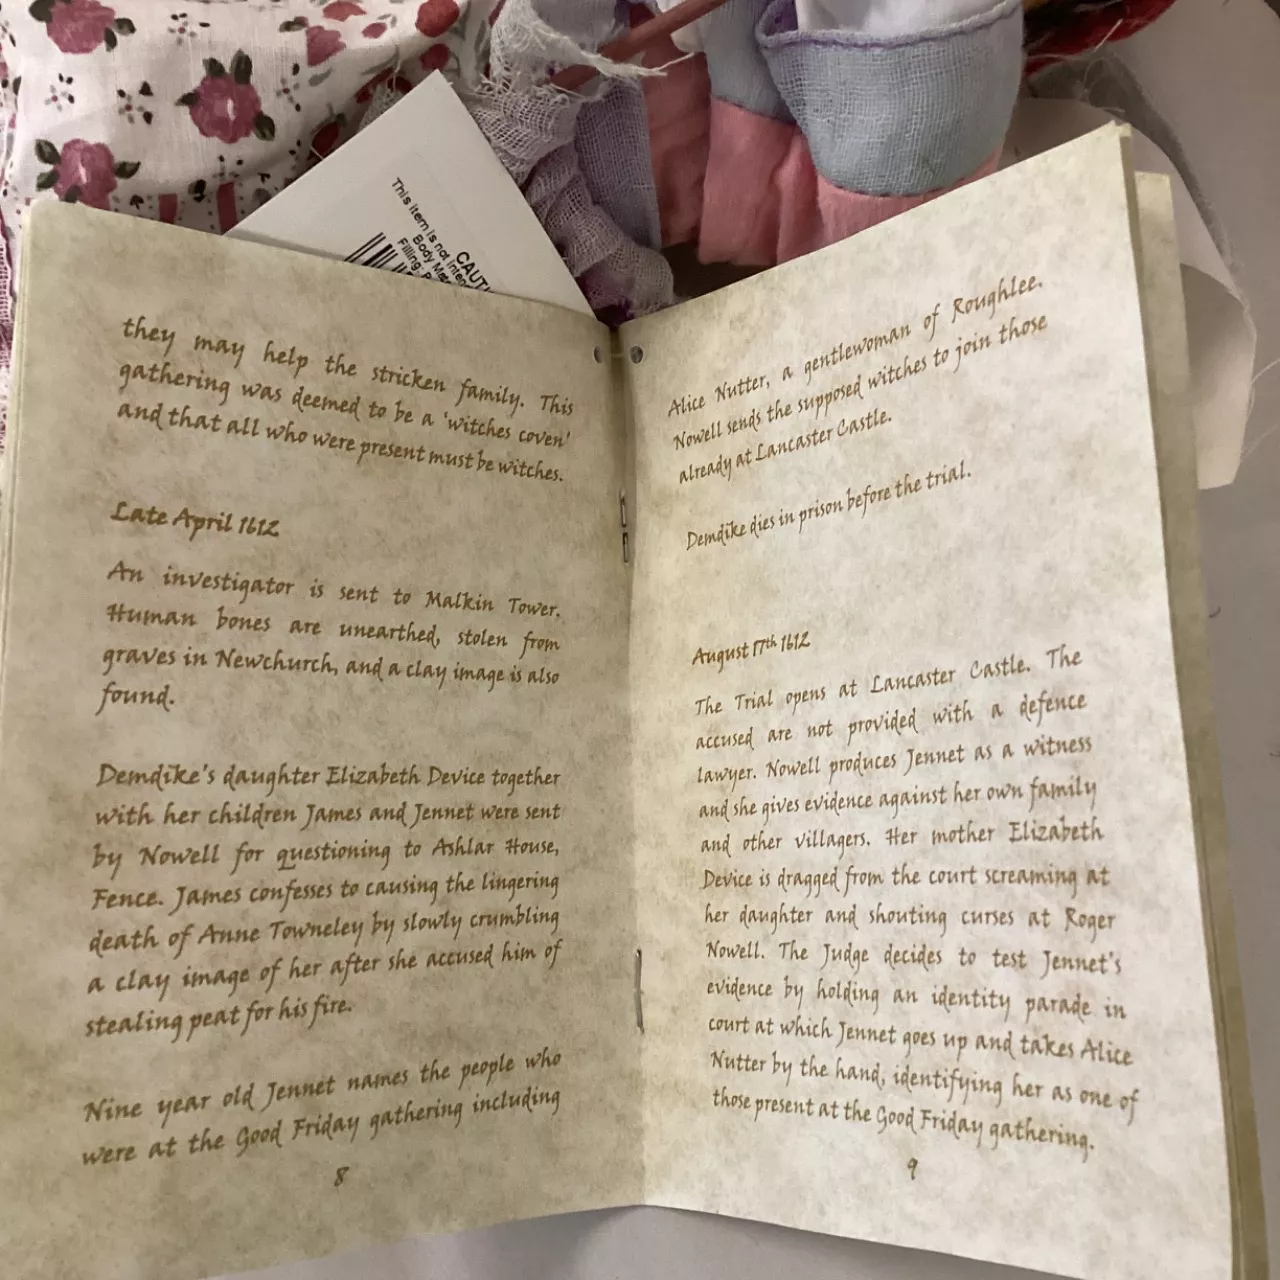 This item is not
CAUT
Body Mate
Filling:
they may help the stricken family. This
gathering was deemed to be a 'witches coven'
and that all who were present must be witches.
Late April 1612
An investigator is sent to Malkin Tower.
Human bones are unearthed, stolen from
graves in Newchurch, and a clay image is also
found.
Demdike's daughter Elizabeth Device together
with her children James and Jennet were sent
by Nowell for questioning to Ashlar House,
Fence. James confesses to causing the lingering
death of Anne Towneley by slowly crumbling
a clay image of her after she accused him of
stealing peat for his fire.
Nine year old Jennet names the people who
were at the Good Friday gathering including
8
Alice Nutter, a gentlewoman of Roughlee.
Nowell sends the supposed witches to join those
already at Lancaster Castle.
Demdike dies in prison before the trial.
August 17th 1612
The Trial opens at Lancaster Castle. The
accused are not provided with a defence
lawyer. Nowell produces Jennet as a witness
and she gives evidence against her own family
and other villagers. Her mother Elizabeth
Device is dragged from the court screaming at
her daughter and shouting curses at Roger
Nowell. The Judge decides to test Jennet's
evidence by holding an identity parade in
court at which Jennet goes up and takes Alice
Nutter by the hand, identifying her as one of
those present at the Good Friday gathering.
9